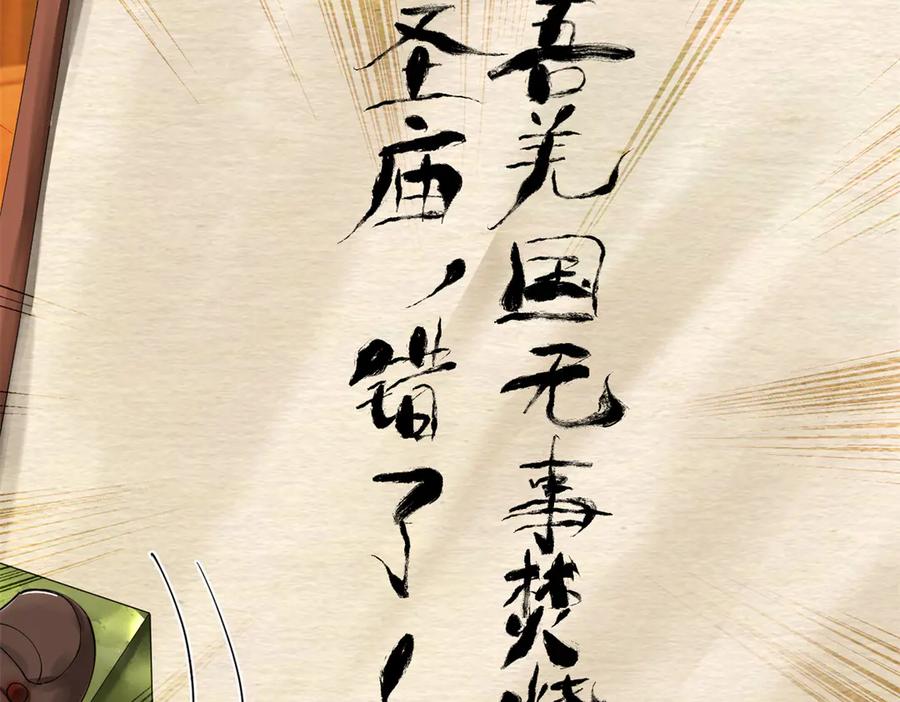 吾羌国无事焚烧
圣庙,错了!